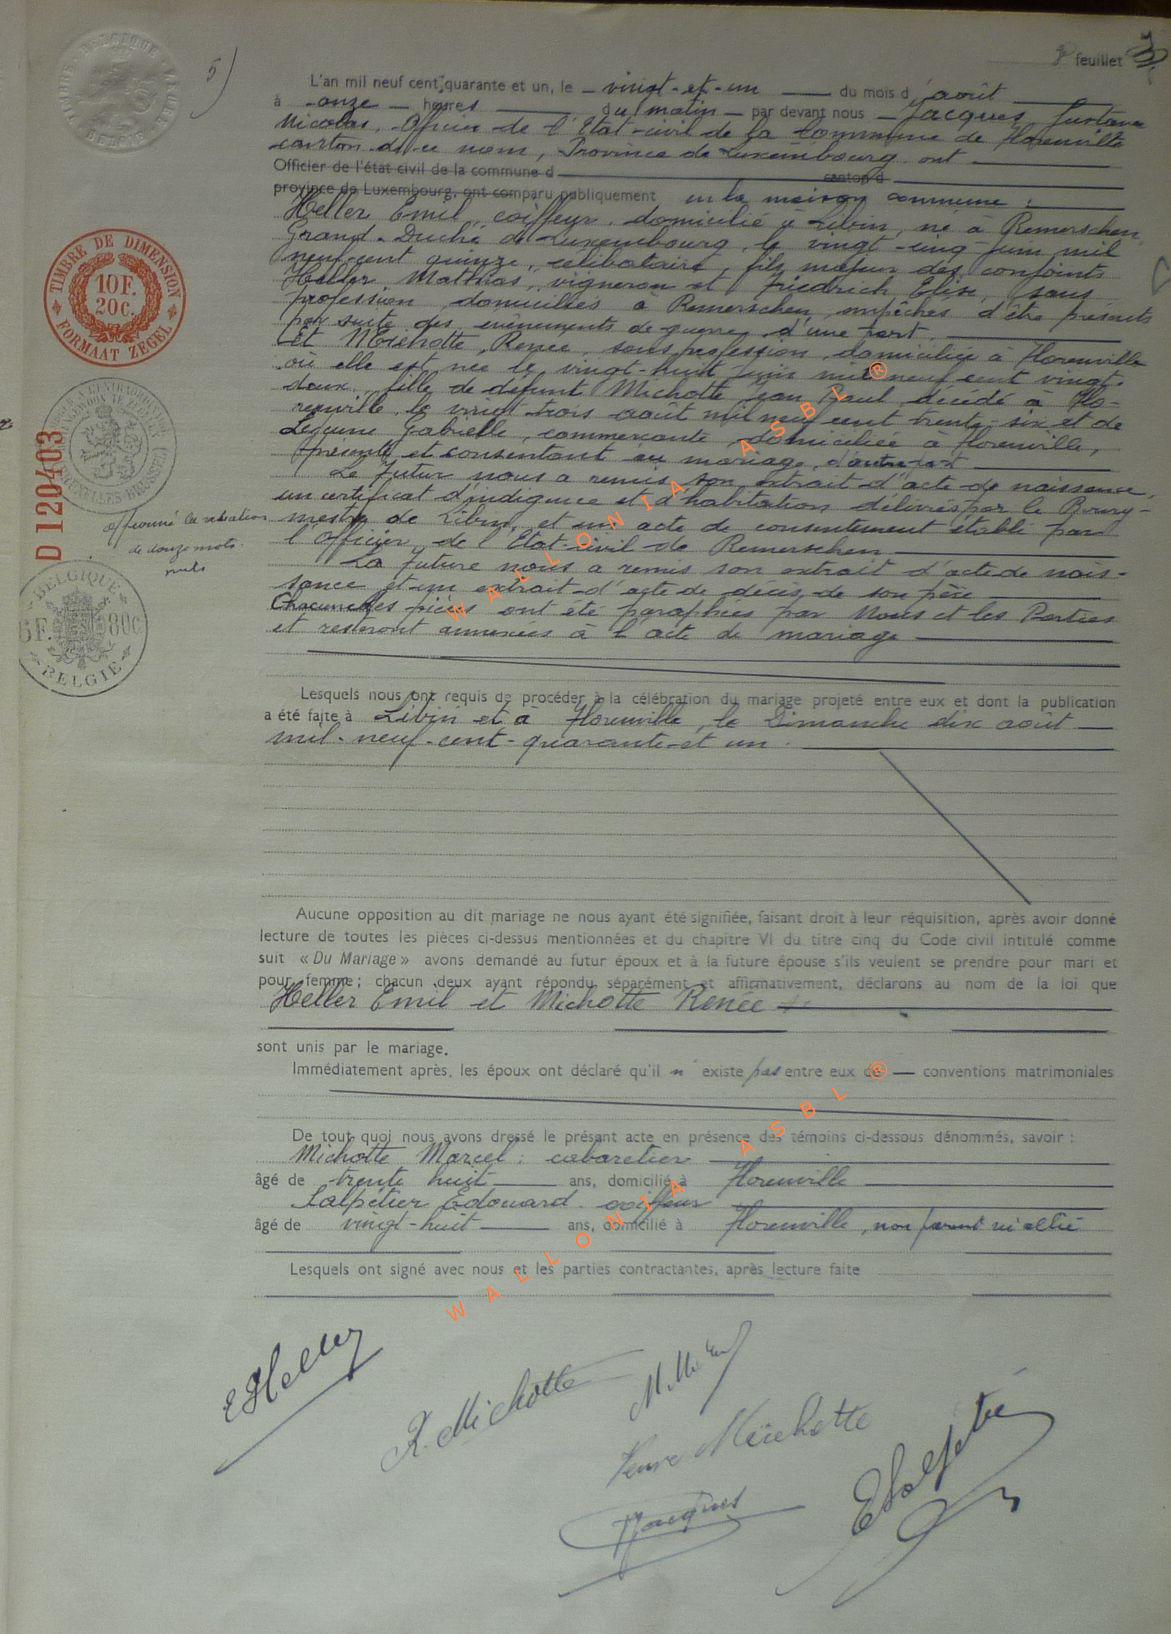 5)
feuillet
L'an mil neuf cent quarante et un, le vingt-et-un du mois d'août
à onze heures du matin par devant nous Jacques Gustave
Nicolas, Officier de l'Etat-civil de la Commune de Florenville
canton de ce nom, Province de Luxembourg ont
Officier de l'état civil de la commune d canton d
province de Luxembourg, ont comparu publiquement en la maison commune :
Heller Emil, coiffeur, domicilié à Libin, né à Remerschen
Grand-Duché de Luxembourg, le vingt-cinq juin mil
neuf cent quinze, célibataire, fils majeur des conjoints
Heller Matthias, vigneron et Friedrich Elise, sans
profession domiciliés à Remerschen, empêchés d'être présents
par suite des évènements de guerre, d'une part.
Et Michotte, Renée, sans profession, domiciliée à Florenville
où elle est née le vingt-huit juin mil neuf cent vingt-
deux, fille de défunt Michotte Jean Paul, décédé à Flo-
renville le vingt trois août mil neuf cent trente six et de
Gabrielle, commerçante, domiciliée à Florenville,
présente et consentant au mariage, d'autre part
Le futur nous a remis son extrait d'acte de naissance,
un certificat d'indigence et d'habitation délivrés par le Bourg-
mestre de Libin, et un acte de consentement établi par
l'Officier de l'Etat-civil de Remerschen
La future nous a remis son extrait d'acte de nais-
sance et un extrait d'acte de décès de son père
Chacune des pièces ont été paraphées par Nous et les Parties
et resteront annexées à l'acte de mariage
Lesquels nous ont requis de procéder à la célébration du mariage projeté entre eux et dont la publication
a été faite à Libin et à Florenville, le Dimanche dix août
mil-neuf-cent-quarante-et un.
Aucune opposition au dit mariage ne nous ayant été signifiée, faisant droit à leur réquisition, après avoir donné
lecture de toutes les pièces ci-dessus mentionnées et du chapitre VI du titre cinq du Code civil intitulé comme
suit « Du Mariage » avons demandé au futur époux et à la future épouse s'ils veulent se prendre pour mari et
pour femme ; chacun deux ayant répondu séparément et affirmativement, déclarons au nom de la loi que
Heller Emil et Michotte Renée
sont unis par le mariage.
Immédiatement après, les époux ont déclaré qu'il n'existe pas entre eux de conventions matrimoniales
De tout quoi nous avons dressé le présant acte en présence des témoins ci-dessous dénommés, savoir :
Michotte Marcel : cabaretier
âgé de trente huit ans, domicilié à Florenville
Salpétier Edouard coiffeur
âgé de vingt-huit ans, domicilié à Florenville, non parent ni allié
Lesquels ont signé avec nous et les parties contractantes, après lecture faite
E Heller
R. Michotte
Veuve Michotte
GJacques
E Salpétié
TIMBRE DE DIMENSION
10F.
20C.
FORMAAT ZEGEL
D 120403
de douze mots
nuls
BELGIQUE
6F. 80C
BELGIE
WALLONIA ASBL ®
WALLONIA ASBL ®